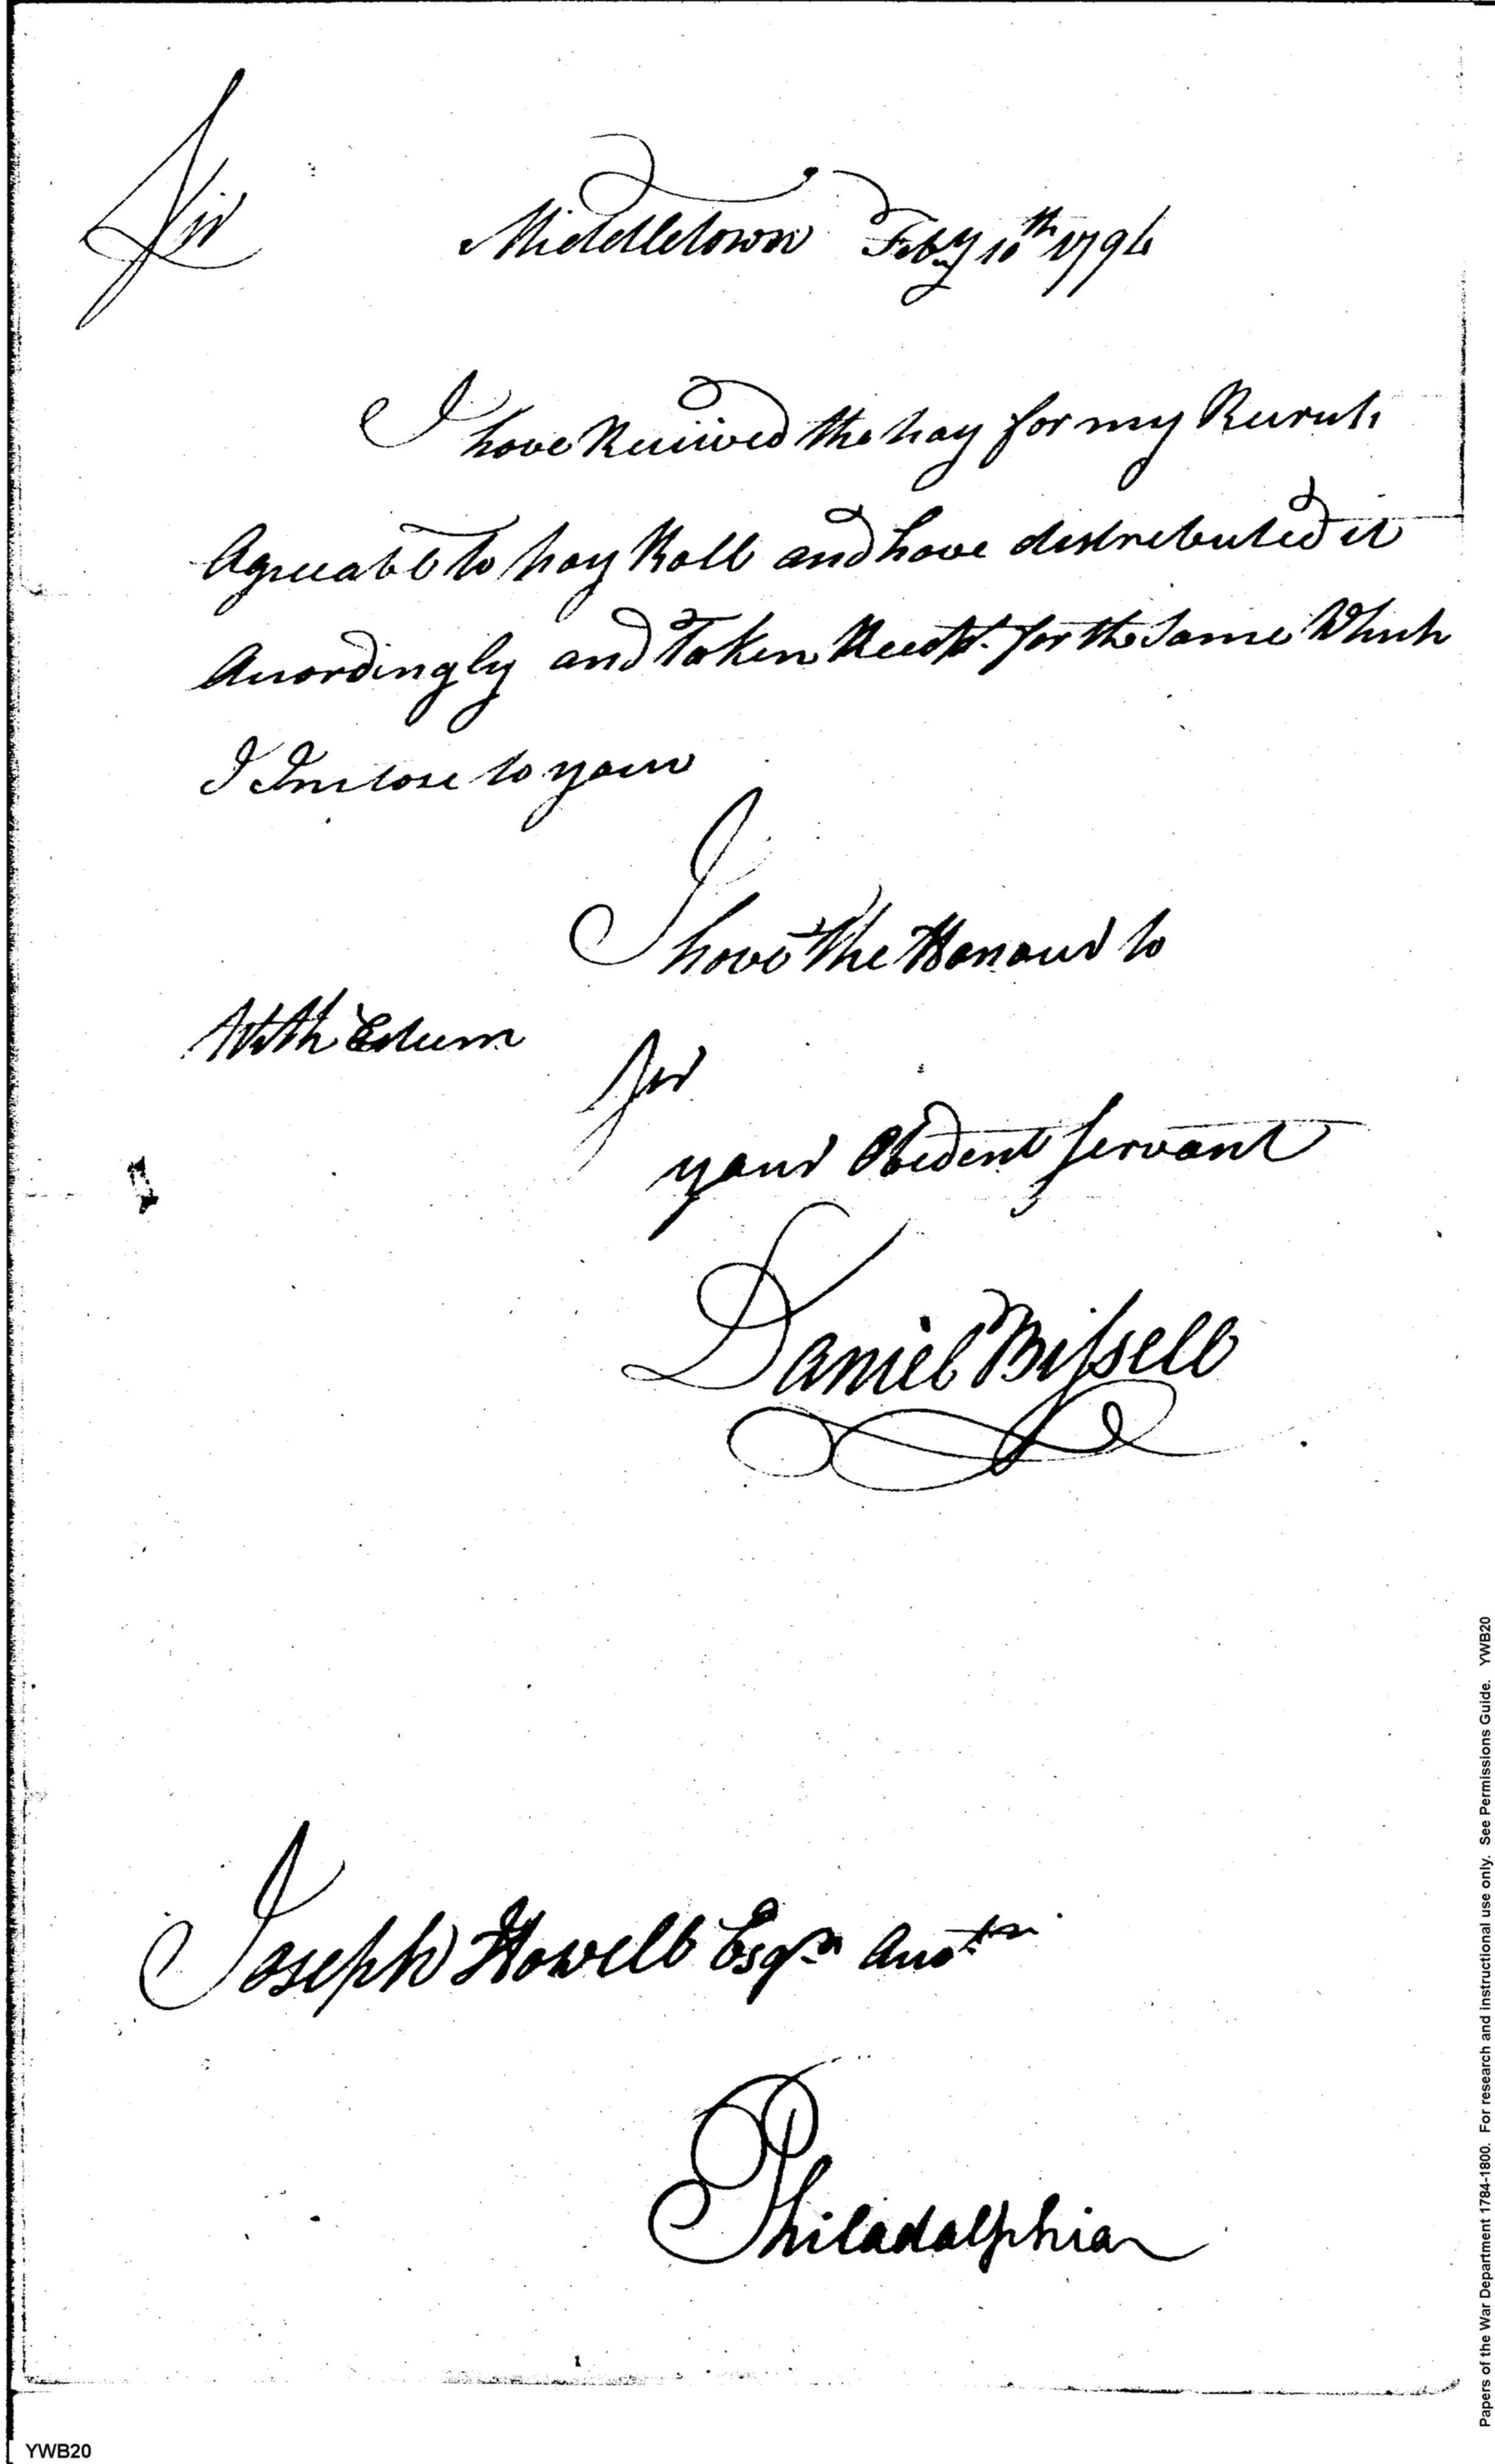 Sir
Middletown Feby 10th 1794
I have Reciived the pay for my Recruts
Agreeabl to pay Roll and have distrebuted it
Acordingly and Taken Receipt for the Same Which
I Inclose to your
I have the Honour to
With Esteem
Sir
your Obedent Servant
Daniel Bissell
Joseph Howell Esqr
Philadalphia
Papers of the War Department 1784-1800. For research and instructional use only. See Permissions Guide. YWB20
YWB20